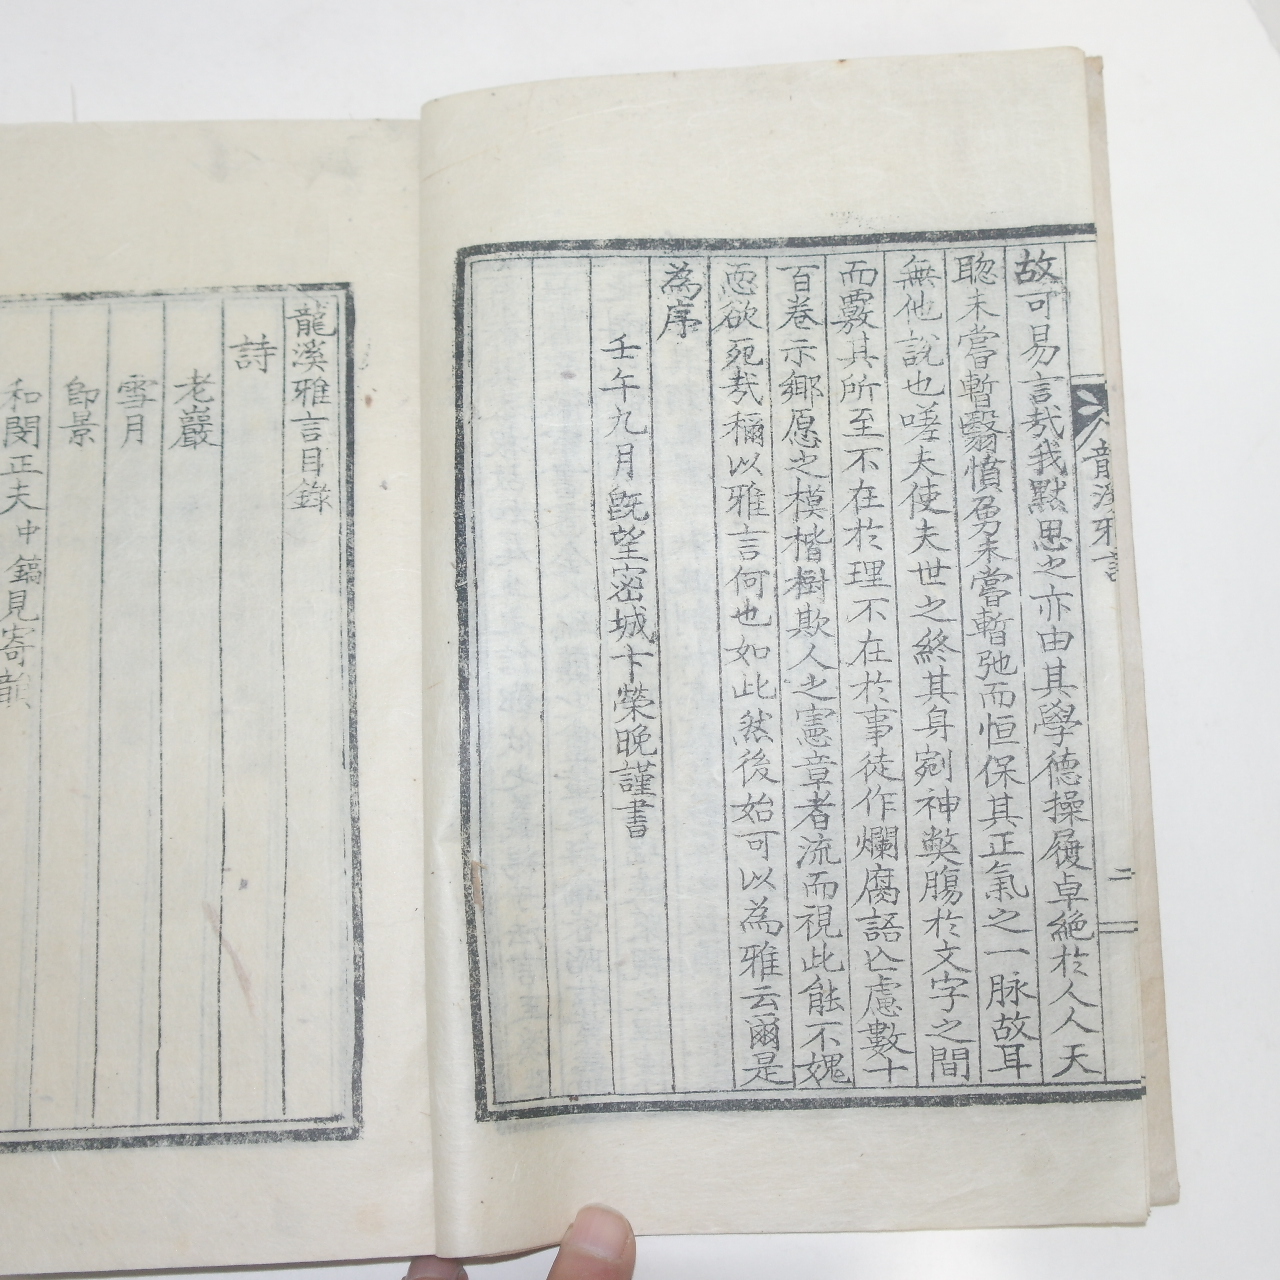 故可易言哉我默思之亦由其學德操履卓絶於人人天
聦未嘗暫翳憤勇未嘗暫弛而恒保其正氣之一脉故耳
無他說也嗟夫使夫世之終其身剜神獘膓於文字之間
而覈其所至不在於理不在於事徒作爛腐語亾慮數十
百卷示鄉愿之模楷樹欺人之憲章者流而視此能不媿
恧欲死㢤稱以雅言何也如此然後始可以為雅云爾是
為序
壬午九月旣望密城卞榮晚謹書
龍溪雅言
二
龍溪雅言目錄
詩
老巖
雪月
卽景
和閔正夫中鎬見寄韻